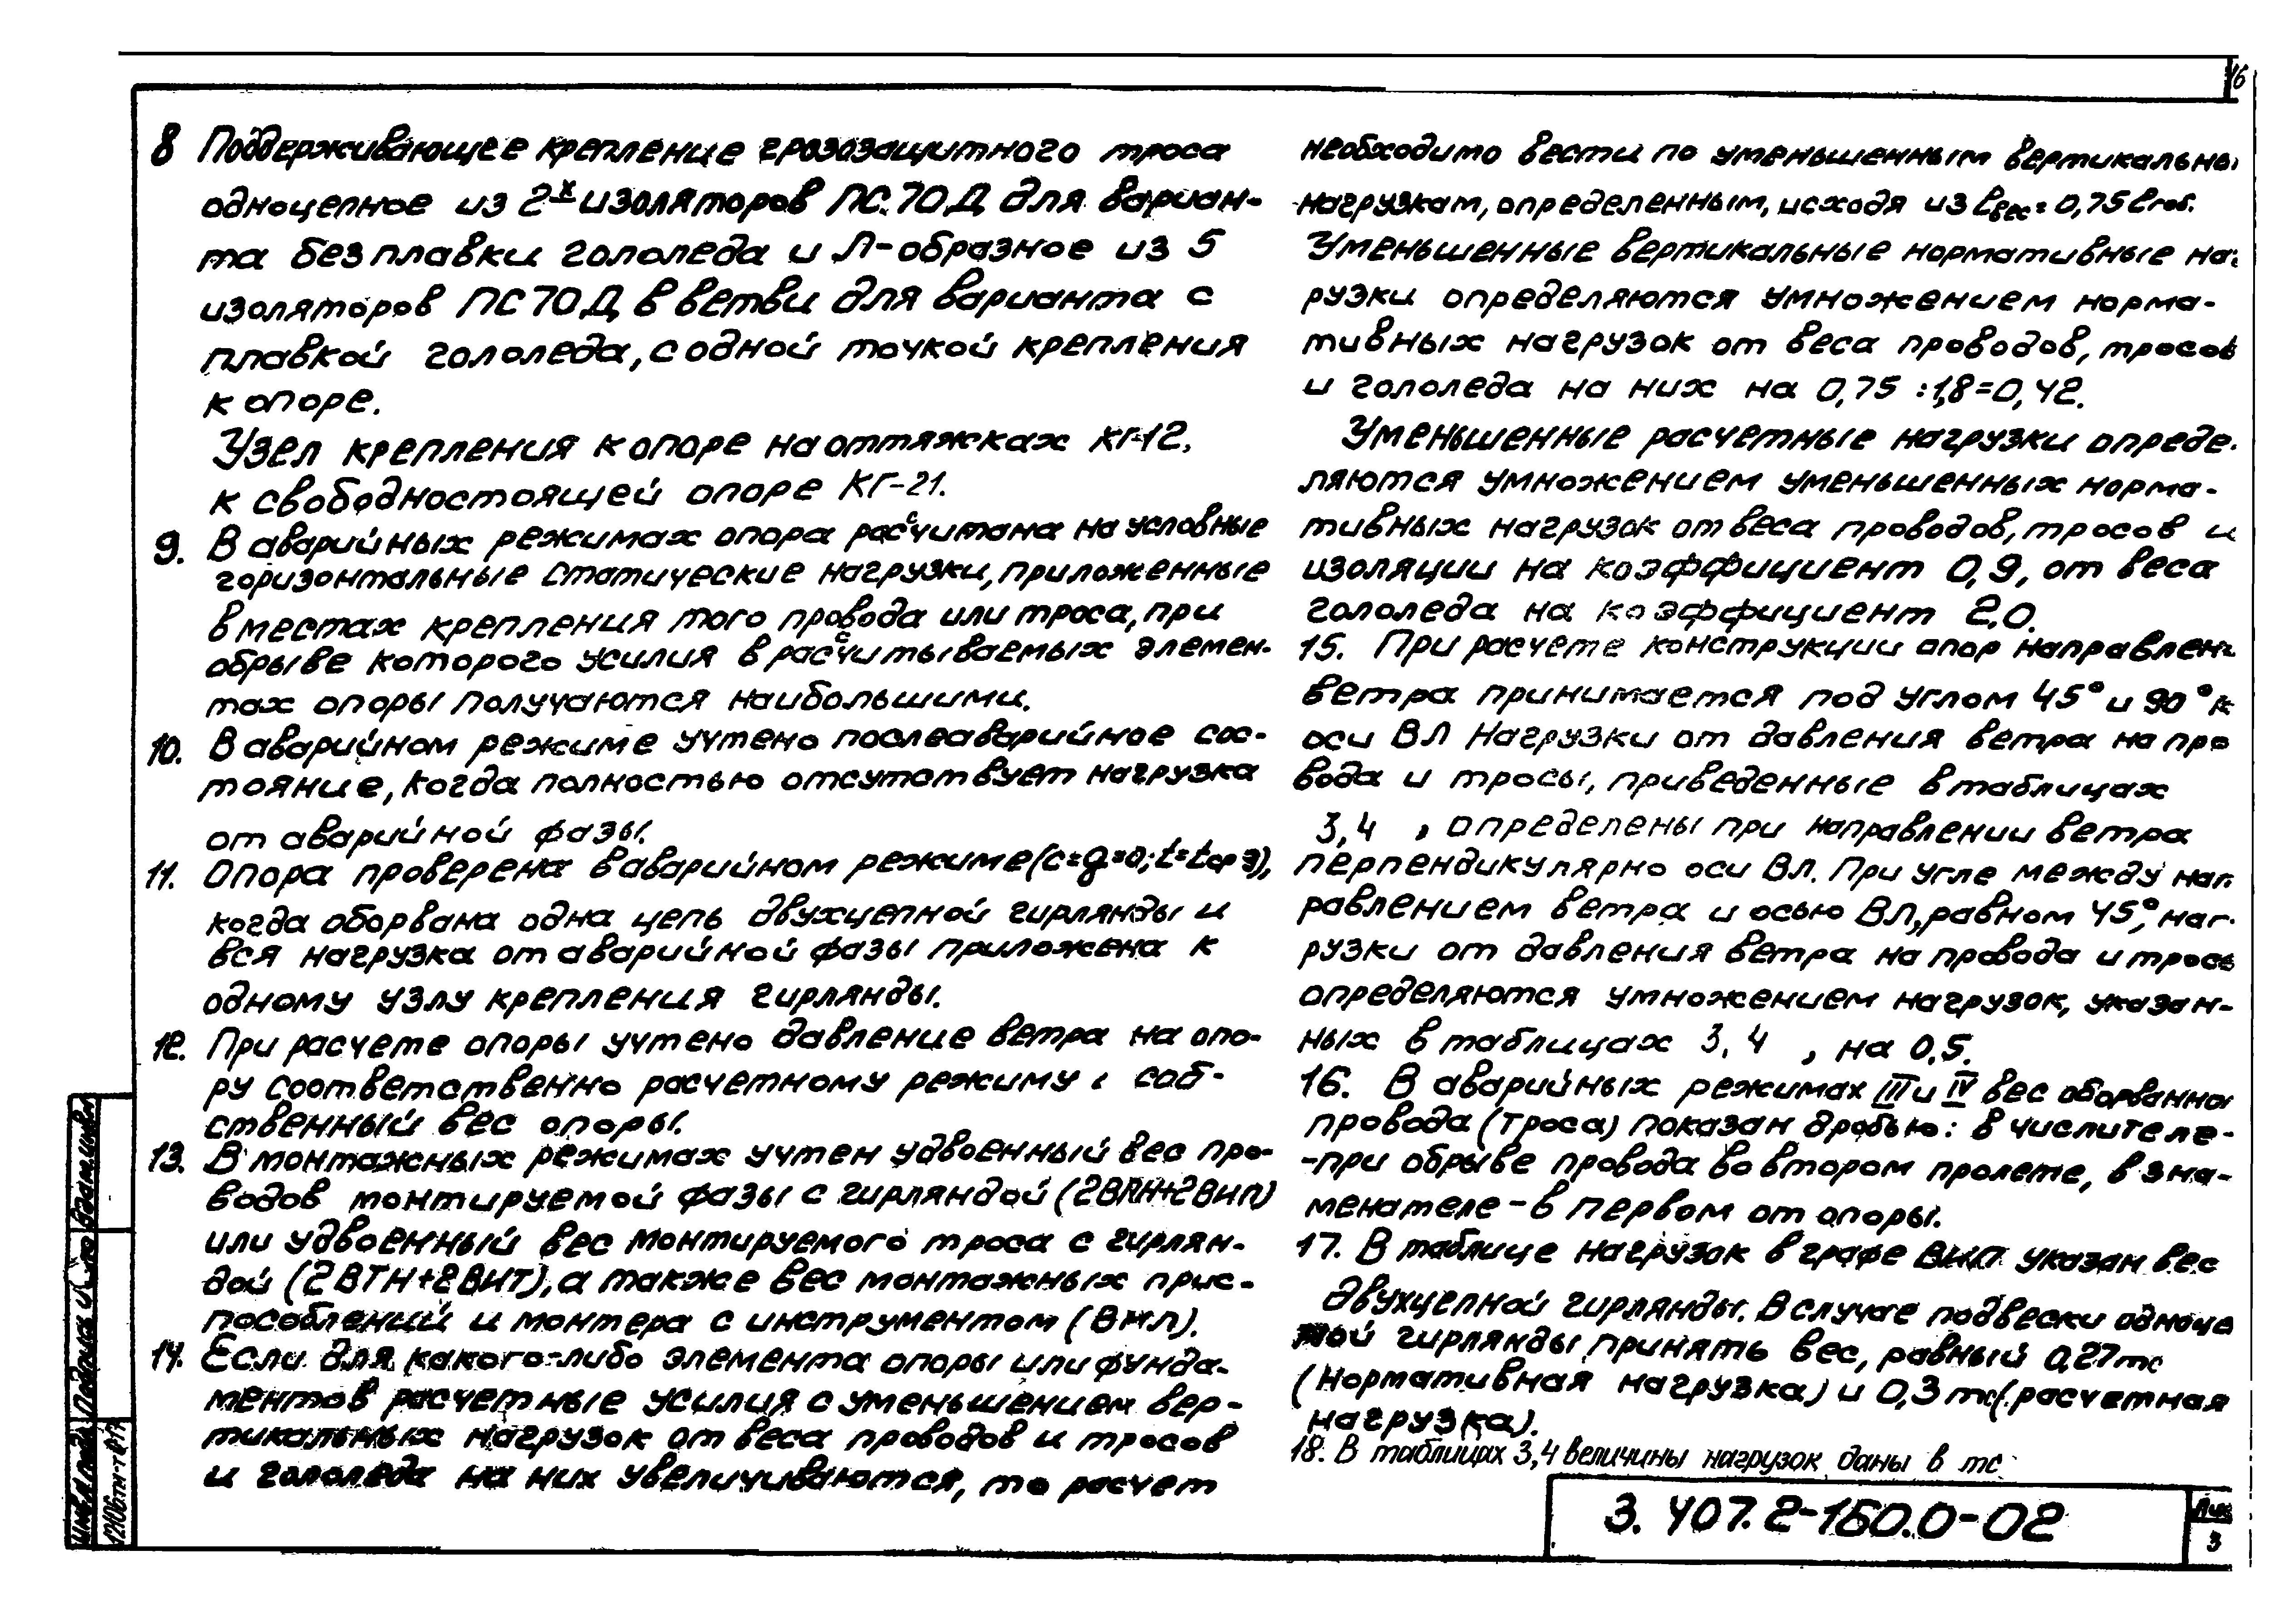 16
8 Поддерживающее крепление грозозащитного троса
одноцепное из 2х изоляторов ПС.70Д для вариан-
та без плавки гололеда и Л-образное из 5
изоляторов ПС70Д в ветви для варианта с
плавкой гололеда, с одной точкой крепления
к опоре.
Узел крепления к опоре на оттяжках КГ-12,
к свободностоящей опоре КГ-21.
9. В аварийных режимах опора рассчитана на условные
горизонтальные статические нагрузки, приложенные
в местах крепления того провода или троса, при
обрыве которого усилия в рассчитываемых элемен-
тах опоры получаются наибольшими.
10. В аварийном режиме учтено послеаварийное сос-
тояние, когда полностью отсутствует нагрузка
от аварийной фазы.
11. Опора проверена в аварийном режиме (с=q=0; t=tср э),
когда оборвана одна цепь двухцепной гирлянды и
вся нагрузка от аварийной фазы приложена к
одному узлу крепления гирлянды.
12. При расчете опоры учтено давление ветра на опо-
ру соответственно расчетному режиму и соб-
ственный вес опоры.
13. В монтажных режимах учтен удвоенный вес про-
водов монтируемой фазы с гирляндой (2ВПН+2ВИП)
или удвоенный вес монтируемого троса с гирлян-
дой (2ВТН+2ВИТ), а также вес монтажных прис-
пособлений и монтера с инструментом (ВМЛ).
14. Если для какого-либо элемента опоры или фунда-
ментов расчетные усилия с уменьшением вер-
тикальных нагрузок от веса проводов и тросов
и гололеда на них увеличиваются, то расчет
необходимо вести по уменьшенным вертикальны
нагрузкам, определенным, исходя из lвес=0,75lгаб.
Уменьшенные вертикальные нормативные наг
рузки определяются умножением норма-
тивных нагрузок от веса проводов, тросов
и гололеда на них на 0,75:1,8=0,42.
Уменьшенные расчетные нагрузки опреде-
ляются умножением уменьшенных норма-
тивных нагрузок от веса проводов, тросов и
изоляции на коэффициент 0,9, от веса
гололеда на коэффициент 2,0.
15. При расчете конструкции опор направлен
ветра принимается под углом 45° и 90° к
оси ВЛ Нагрузки от давления ветра на про
вода и тросы, приведенные в таблицах
3,4 , определены при направлении ветра
перпендикулярно оси ВЛ. При угле между нап
равлением ветра и осью ВЛ, равном 45°, наг-
рузки от давления ветра на провода и тросы
определяются умножением нагрузок, указан-
ных в таблицах 3,4 , на 0,5.
16. В аварийных режимах III и IV вес оборванног
провода (троса) показан дробью: в числителе-
-при обрыве провода во втором пролете, в зна-
менателе - в первом от опоры.
17. В таблице нагрузок в графе ВИП указан вес
двухцепной гирлянды. В случае подвески одноце
пной гирлянды принять вес, равный 0,27тс
(нормативная нагрузка) и 0,3 тс (расчетная
нагрузка).
18. В таблицах 3,4 величины нагрузок даны в тс
3.407.2-160.0-02
Лис
3
Взам.инв.№
Подпись и
Инв.№ подл.